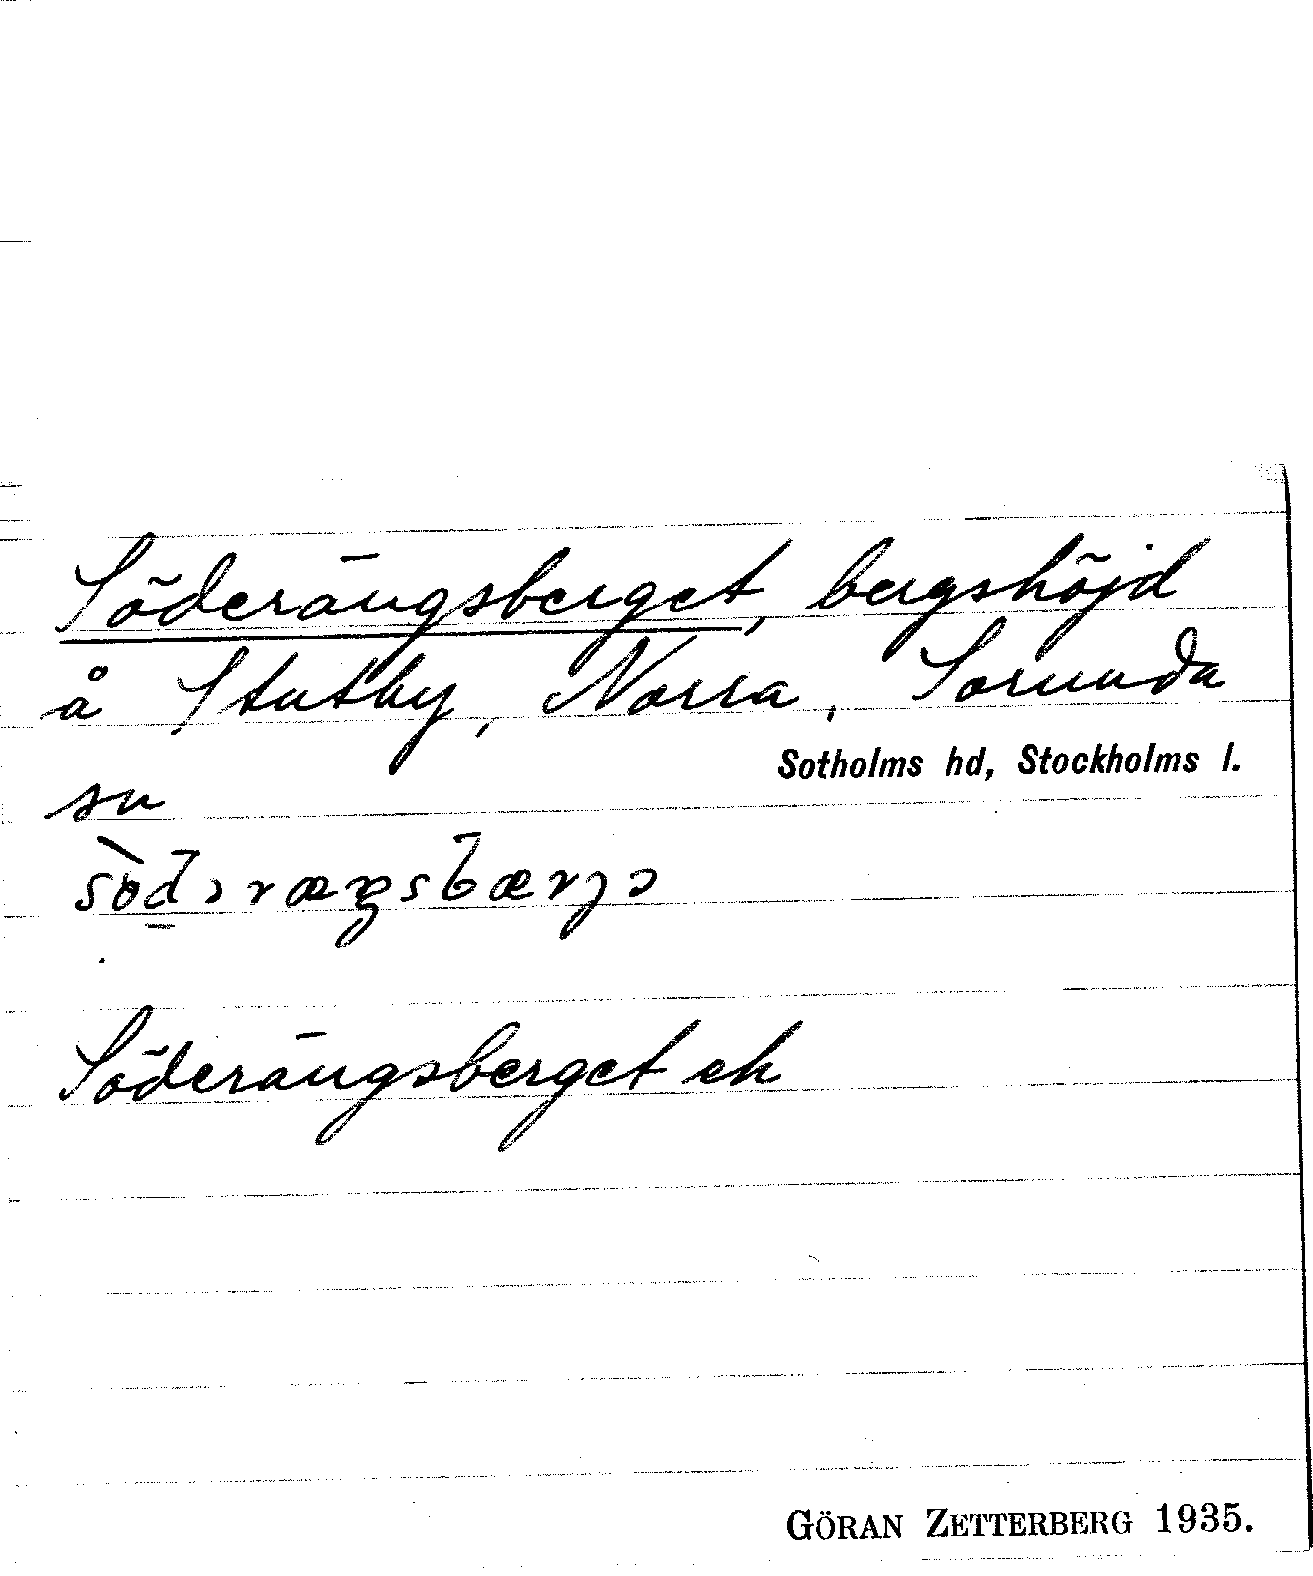 Söderängsberget, bergshöjd
å Stutby, Norra, Sorunda
Sotholms hd, Stockholms l.
sn
sòdəræŋsbærjə
Söderängsberget ek
GÖRAN ZETTERBERG 1935.